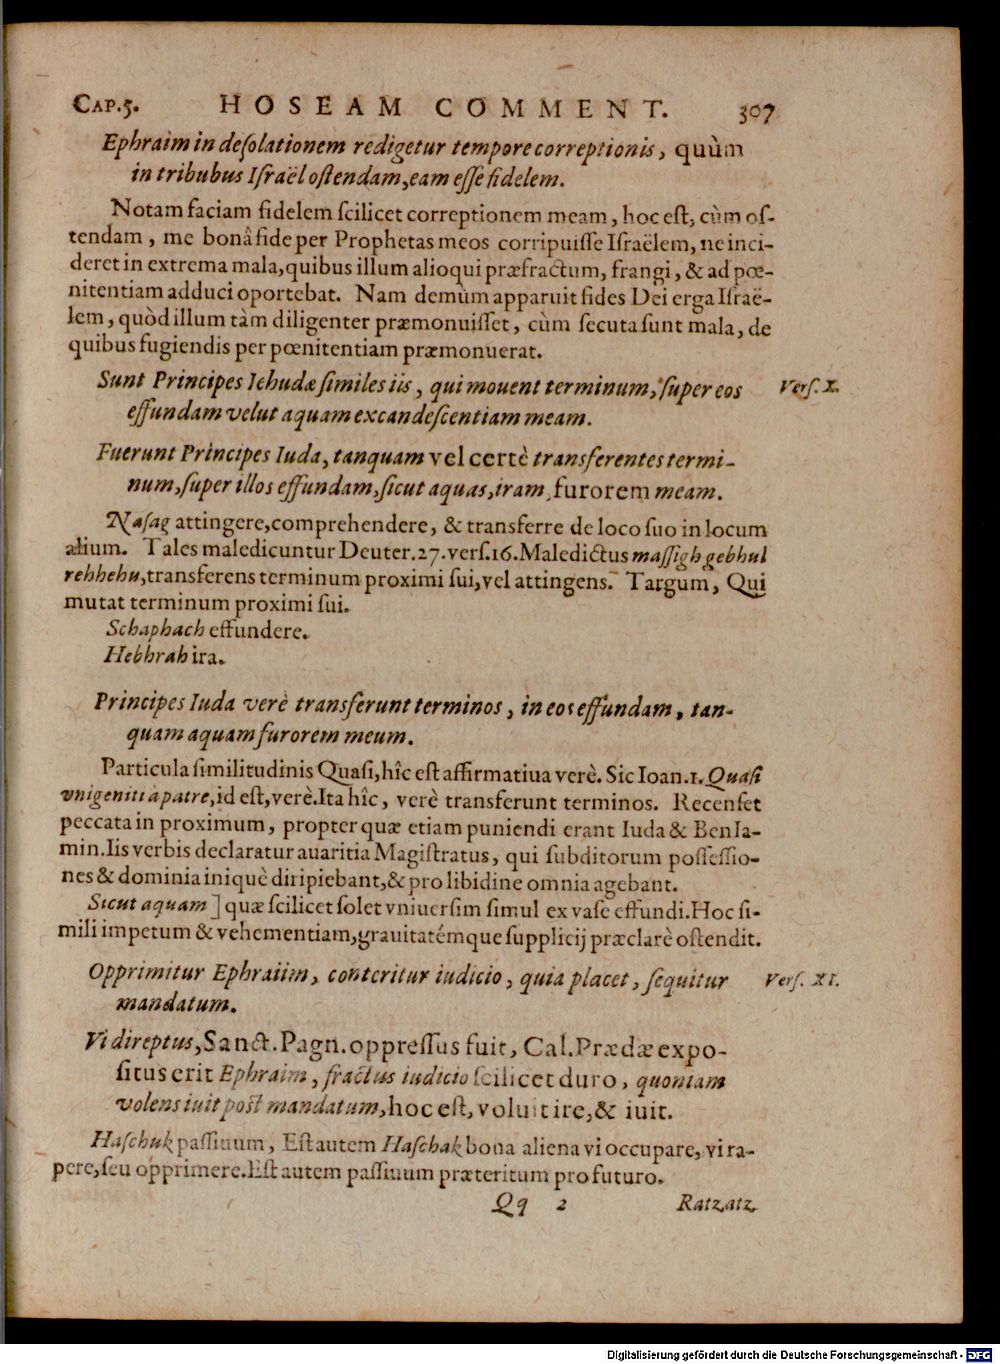 CAP.5. HOSEAM COMMENT. 307
Ephraim in deſolationem redigetur tempore correptionis, quùm
in tribubus Iſraël oſtendam, eam eſſe fidelem.
Notam faciam fidelem ſcilicet correptionem meam, hoc eſt, cùm oſ-
tendam, me bonâ fide per Prophetas meos corripuiſſe Iſraëlem, ne inci-
deret in extrema mala, quibus illum alioqui præfractum, frangi, & ad pœ-
nitentiam adduci oportebat. Nam demùm apparuit fides Dei erga Iſraë-
lem, quòd illum tàm diligenter præmonuiſſet, cùm ſecuta ſunt mala, de
quibus fugiendis per pœnitentiam præmonuerat.
Sunt Principes Iehudæ ſimiles iis, qui mouent terminum, ſuper eos
Verſ. X.
effundam velut aquam excandeſcentiam meam.
Fuerunt Principes Iuda, tanquam vel certè transferentes termi-
num, ſuper illos effundam, ſicut aquas, iram, furorem meam.
Naſag attingere, comprehendere, & transferre de loco ſuo in locum
alium. Tales maledicuntur Deuter. 27. verſ. 16. Maledictus maſſigh gebhul
rehhehu, transferens terminum proximi ſui, vel attingens. Targum, Qui
mutat terminum proximi ſui.
Schaphach effundere.
Hebhrah ira.
Principes Iuda verè transferunt terminos, in eos effundam, tan-
quam aquam furorem meum.
Particula ſimilitudinis Quaſi, hîc eſt affirmatiua verè. Sic Ioan. 1. Quaſi
vnigeniti à patre, id eſt, verè. Ita hîc, verè transferunt terminos. Recenſet
peccata in proximum, propter quæ etiam puniendi erant Iuda & BenIa-
min. Iis verbis declaratur auaritia Magiſtratus, qui ſubditorum poſſeſſio-
nes & dominia iniquè diripiebant, & pro libidine omnia agebant.
Sicut aquam] quæ ſcilicet ſolet vniuerſim ſimul ex vaſe effundi. Hoc ſi-
mili impetum & vehementiam, grauitatémque ſupplicij præclarè oſtendit.
Opprimitur Ephraiim, conteritur iudicio, quia placet, ſequitur
Verſ. XI.
mandatum.
Vi direptus, Sanct. Pagn. oppreſſus fuit, Cal. Prædæ expo-
ſitus erit Ephraim, fractus iudicio ſcilicet duro, quoniam
volens iuit poſt mandatum, hoc eſt, voluit ire, & iuit.
Haſchuk paſſiuum, Eſt autem Haſchak bona aliena vi occupare, vi ra-
pere, ſeu opprimere. Eſt autem paſſiuum præteritum pro futuro.
Qq 2 Ratzatz
Digitalisierung gefördert durch die Deutsche Forschungsgemeinschaft - DFG